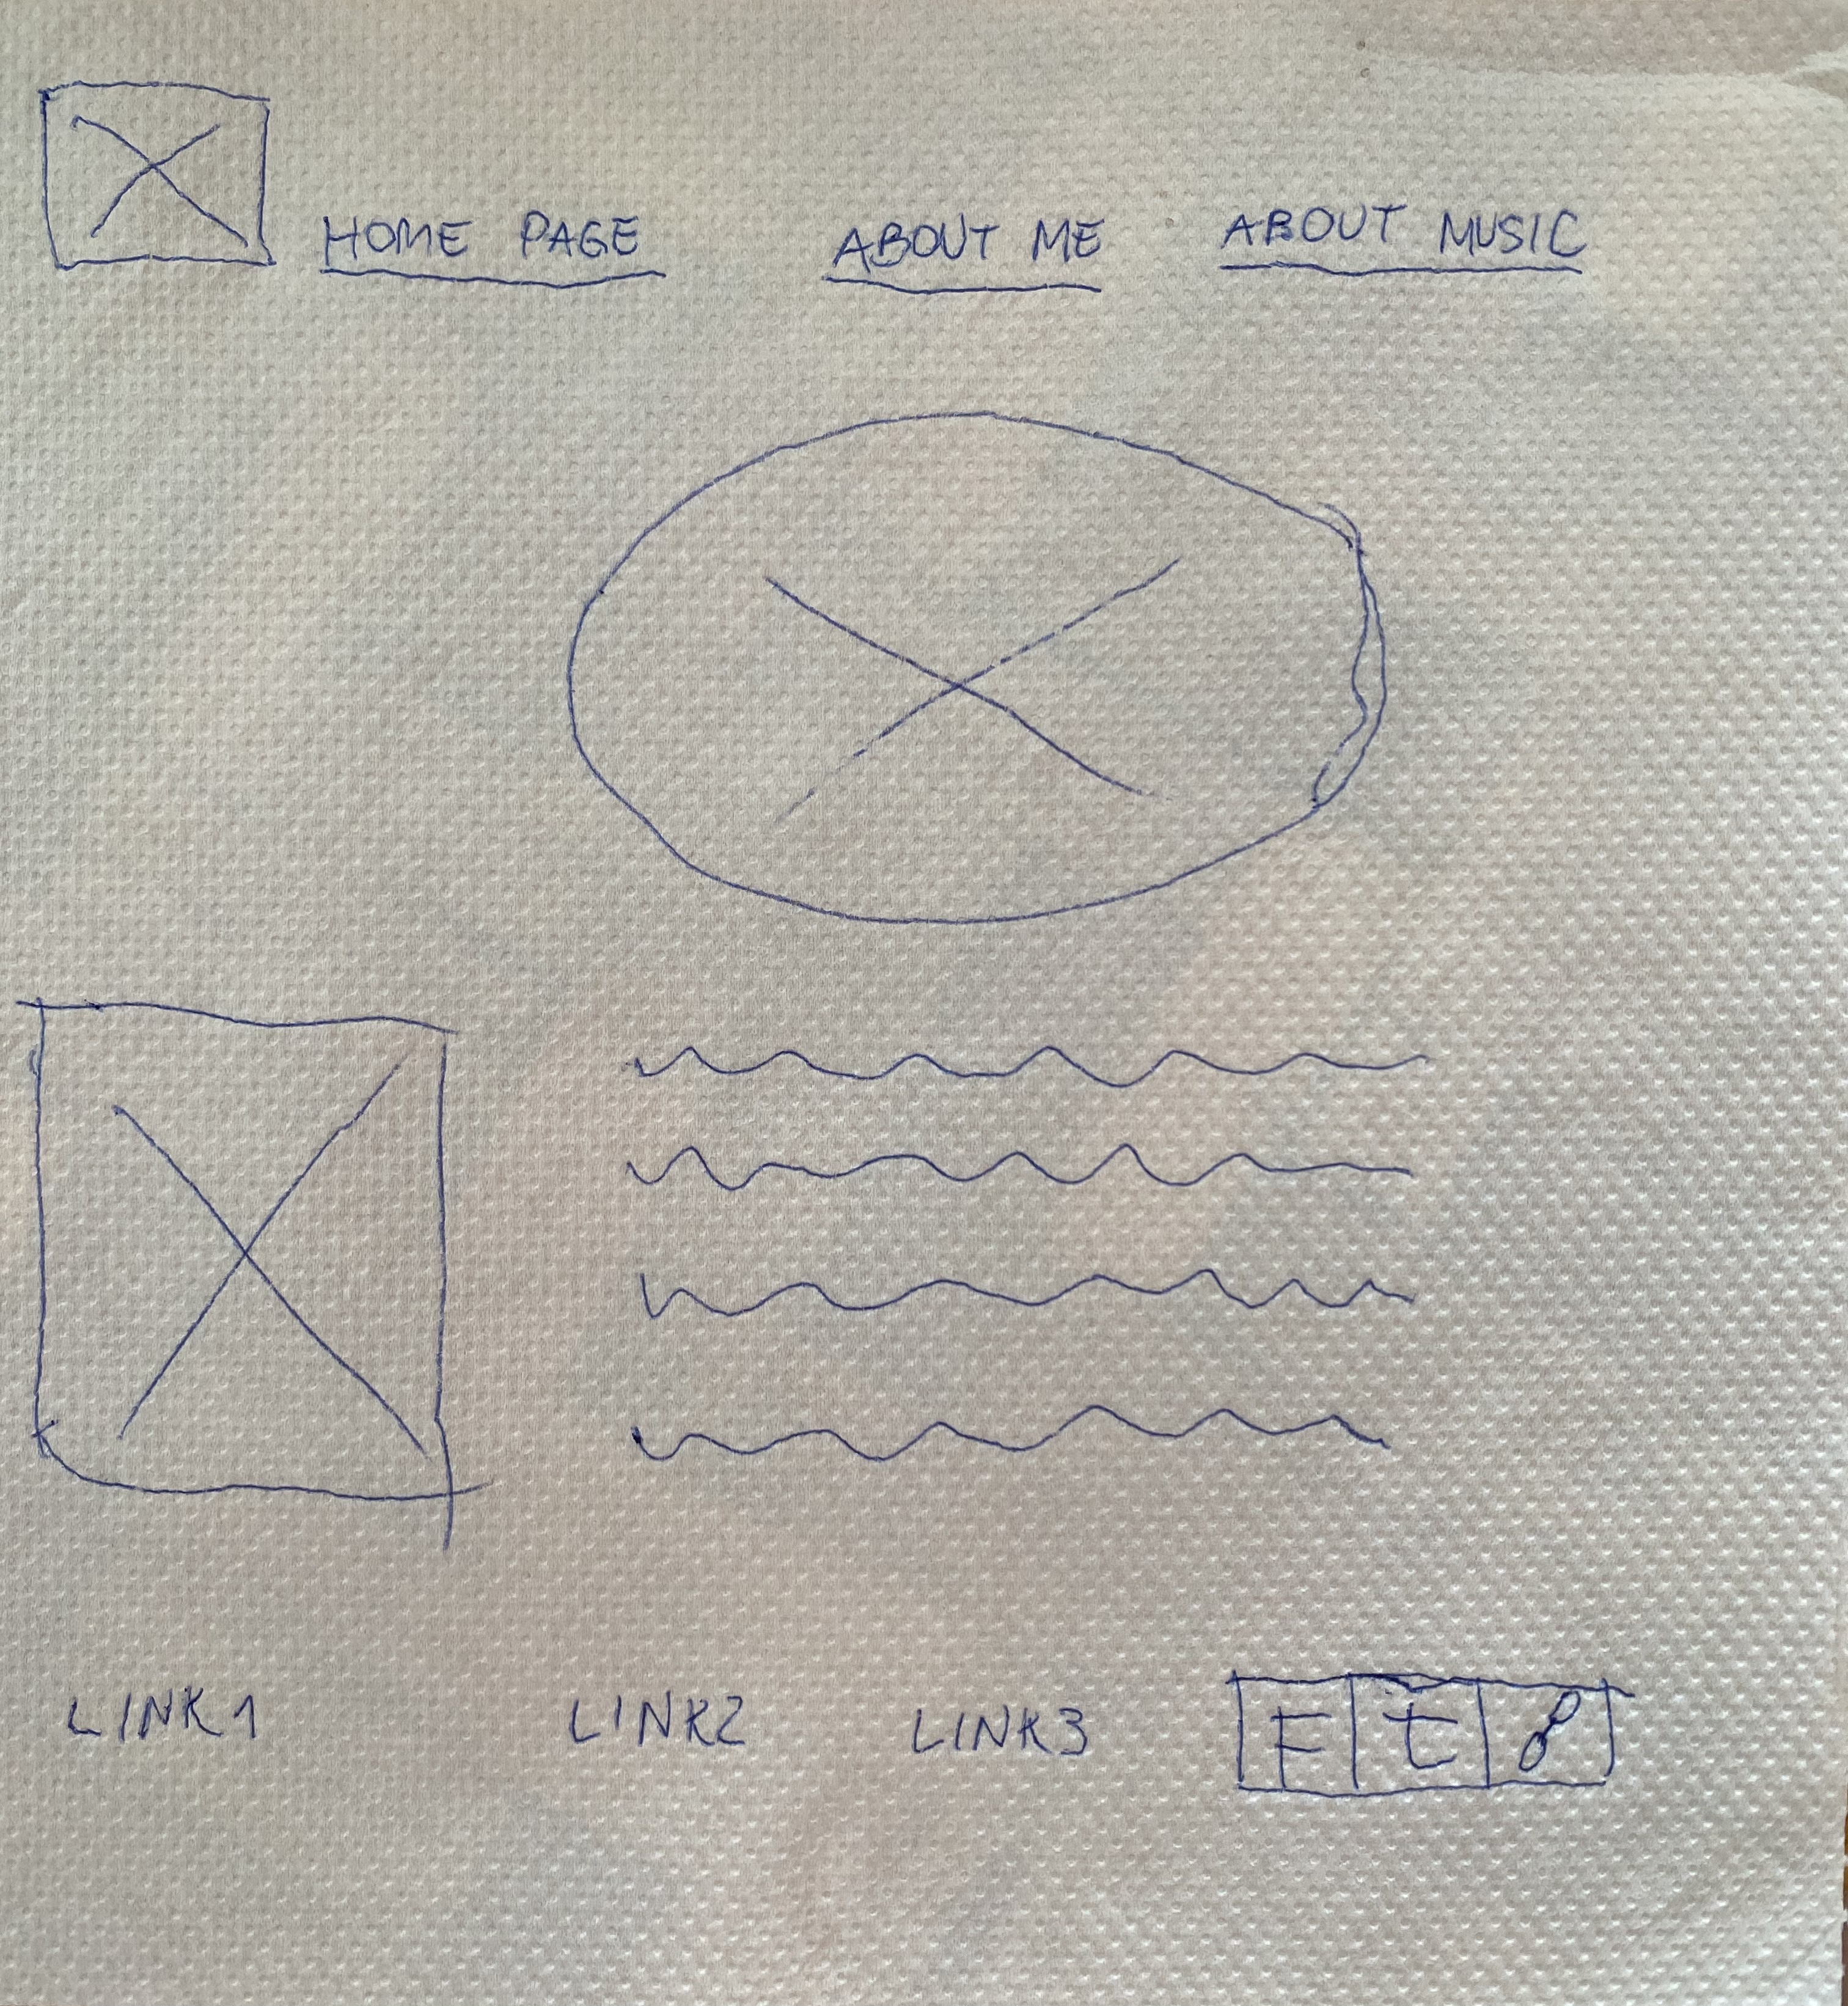 HOME PAGE ABOUT ME ABOUT MUSIC
LINK1 LINK2 LINK3 F t